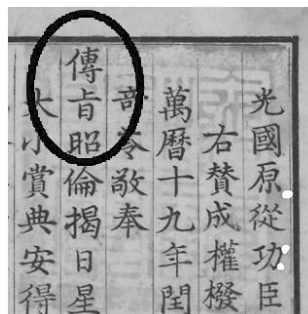 光國原從功臣
右贊成權橃
萬曆十九年閏
敬奉
傳旨昭倫揭日星
大小賞典安得